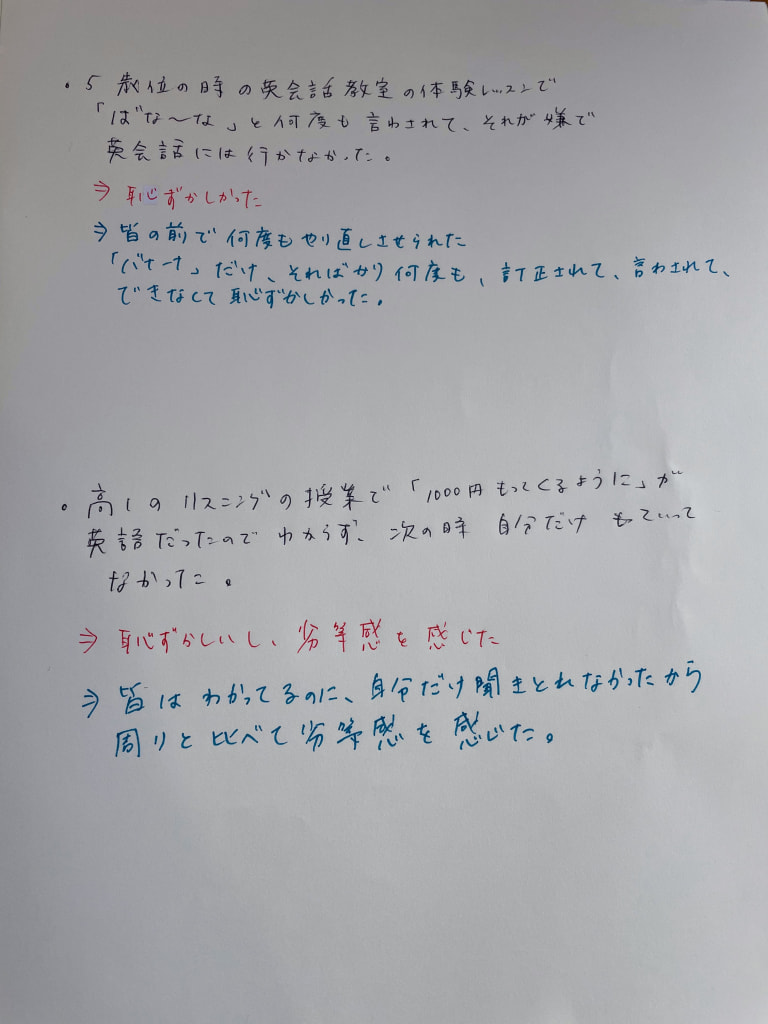 ・5歳位の時の英会話教室の体験レッスンで
「ばな〜な」と何度も言わされて、それが嫌で
英会話には行かなかった。
⇒ 恥ずかしかった
⇒ 皆の前で何度もやり直しさせられた
「バナナ」だけ、そればかり何度も、訂正されて、言わされて、
できなくて恥ずかしかった。
・高1のリスニングの授業で「1000円もってくるように」が
英語だったのでわからず、次の時 自分だけ もっていって
なかった。
⇒ 恥ずかしいし、劣等感を感じた
⇒ 皆はわかってるのに、自分だけ聞きとれなかったから
周りと比べて劣等感を感じた。